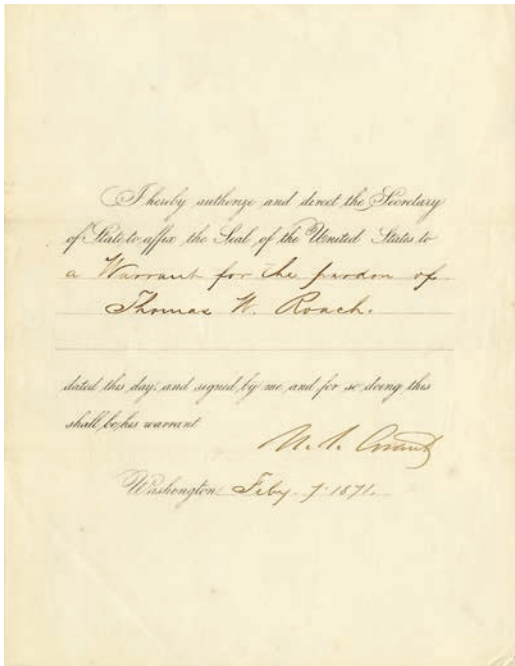 I hereby authorize and direct the Secretary
of State to affix the Seal of the United States to
a Warrant for the pardon of
Thomas W. Roach.
dated this day, and signed by me, and for so doing this
shall be his warrant
U. S. Grant
Washington, Feby. 7. 1871.